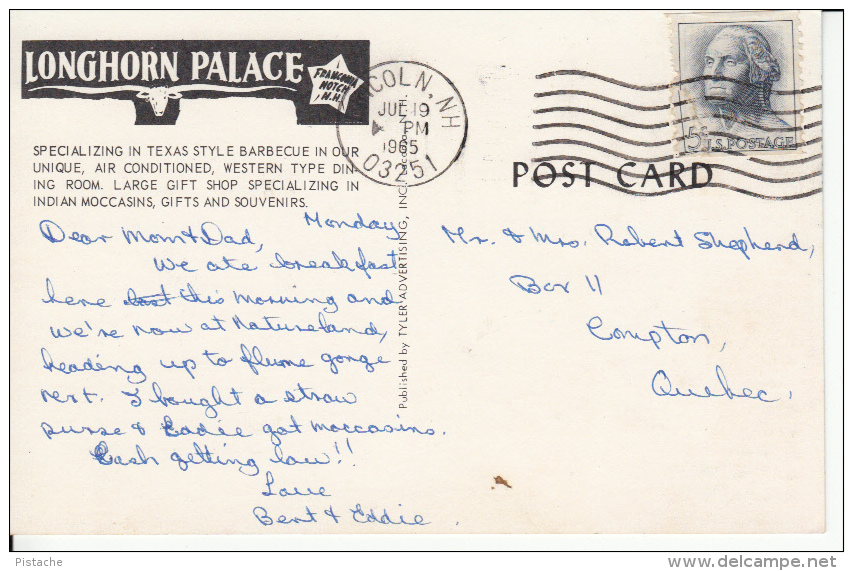 LONGHORN PALACE
FRANCONIA
NOTCH
N.H.
SPECIALIZING IN TEXAS STYLE BARBECUE IN OUR
UNIQUE, AIR CONDITIONED, WESTERN TYPE DIN-
ING ROOM. LARGE GIFT SHOP SPECIALIZING IN
INDIAN MOCCASINS, GIFTS AND SOUVENIRS.
LINCOLN, NH
JUL 19
PM
1965
03251
5¢ U.S. POSTAGE
POST CARD
Published by TYLER ADVERTISING, INC.
Monday
Dear Mom & Dad,
We ate breakfast
here last this morning and
we're now at Natureland,
heading up to flume gorge
next. I bought a straw
purse & Eddie got moccasins.
Cash getting low!!
Love
Bent & Eddie.
Mr. & Mrs. Robert Shepherd,
Box 11
Compton,
Quebec.
Pistache
delcampe.net